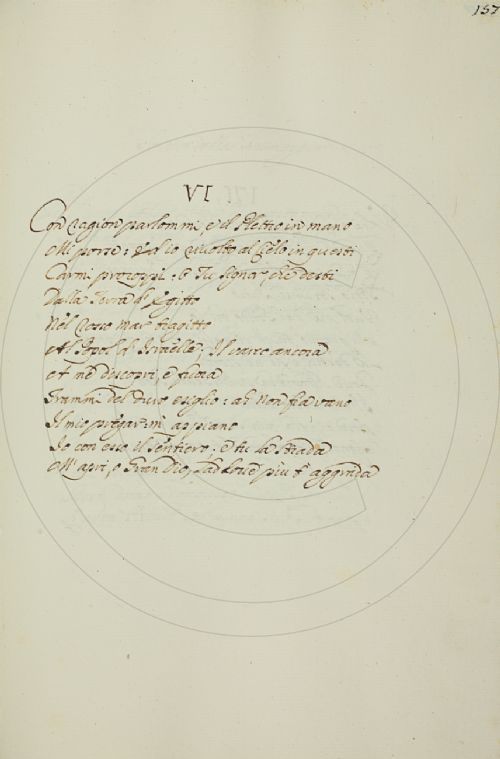 157
VI
Con ragion parlommi, e il Plettro in mano
Mi porse: Ed io rivolto al Cielo in questi
Carmi proroppi: O Tu Signor, che desti
Dalla Terra d'Egitto
Nel Rosso mar tragitto
Al Popol d'Israelle, Il varco ancora
A me discopri, e fuora
Trammi del duro esiglio: ah non fia vano
Il mio pregar: mi appiano
Io con esso il sentiero; e tu la strada
M'apri, o Gran Dio, Laddove più t'aggrada